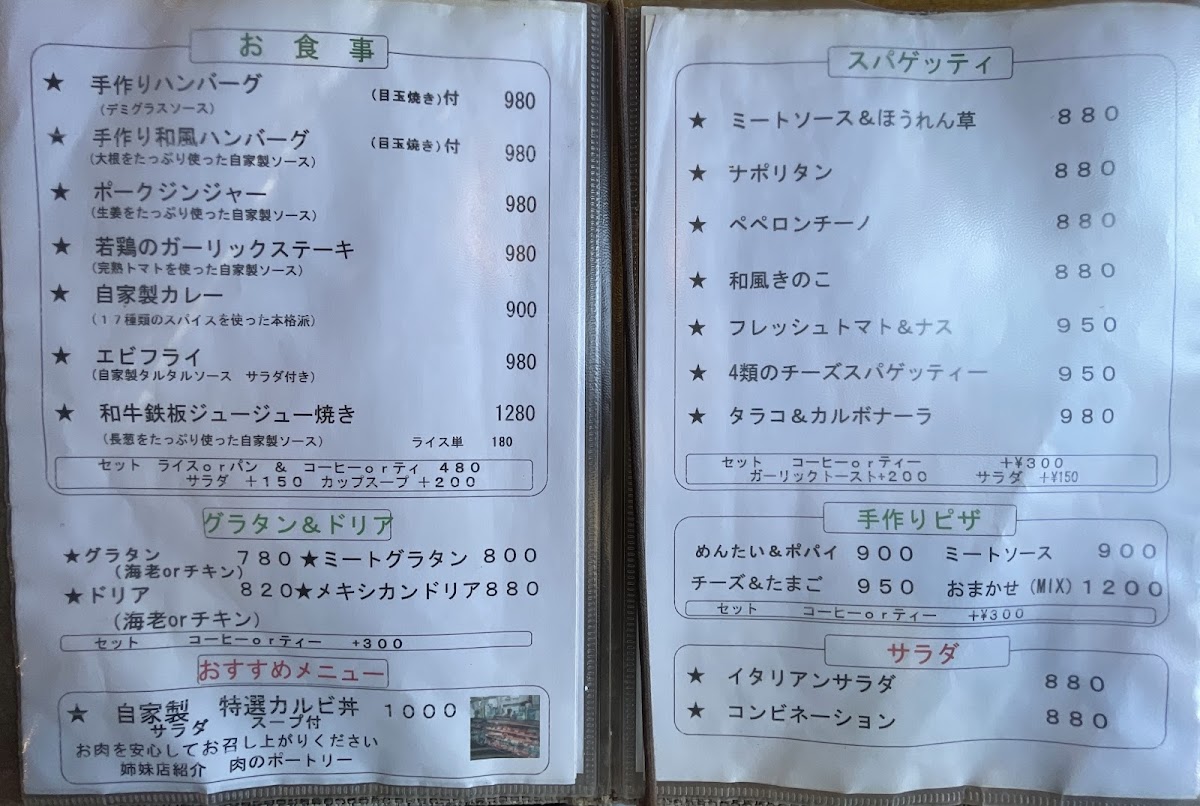 お食事
★ 手作りハンバーグ (目玉焼き)付 980
(デミグラスソース)
★ 手作り和風ハンバーグ (目玉焼き)付 980
(大根をたっぷり使った自家製ソース)
★ ポークジンジャー 980
(生姜をたっぷり使った自家製ソース)
★ 若鶏のガーリックステーキ 980
(完熟トマトを使った自家製ソース)
★ 自家製カレー 900
(17種類のスパイスを使った本格派)
★ エビフライ 980
(自家製タルタルソース サラダ付き)
★ 和牛鉄板ジュージュー焼き 1280
(長葱をたっぷり使った自家製ソース) ライス単 180
セット ライスorパン & コーヒーorティ 480
サラダ +150 カップスープ +200
グラタン&ドリア
★グラタン 780 ★ミートグラタン 800
(海老orチキン)
★ドリア 820 ★メキシカンドリア 880
(海老orチキン)
セット コーヒーorティー +300
おすすめメニュー
★ 自家製 特選カルビ丼 1000
サラダ スープ付
お肉を安心してお召し上がりください
姉妹店紹介 肉のポートリー
スパゲッティ
★ ミートソース&ほうれん草 880
★ ナポリタン 880
★ ペペロンチーノ 880
★ 和風きのこ 880
★ フレッシュトマト&ナス 950
★ 4類のチーズスパゲッティー 950
★ タラコ&カルボナーラ 980
セット コーヒーorティー +¥300
ガーリックトースト+200 サラダ +¥150
手作りピザ
めんたい&ポパイ 900 ミートソース 900
チーズ&たまご 950 おまかせ(MIX) 1200
セット コーヒーorティー +¥300
サラダ
★ イタリアンサラダ 880
★ コンビネーション 880